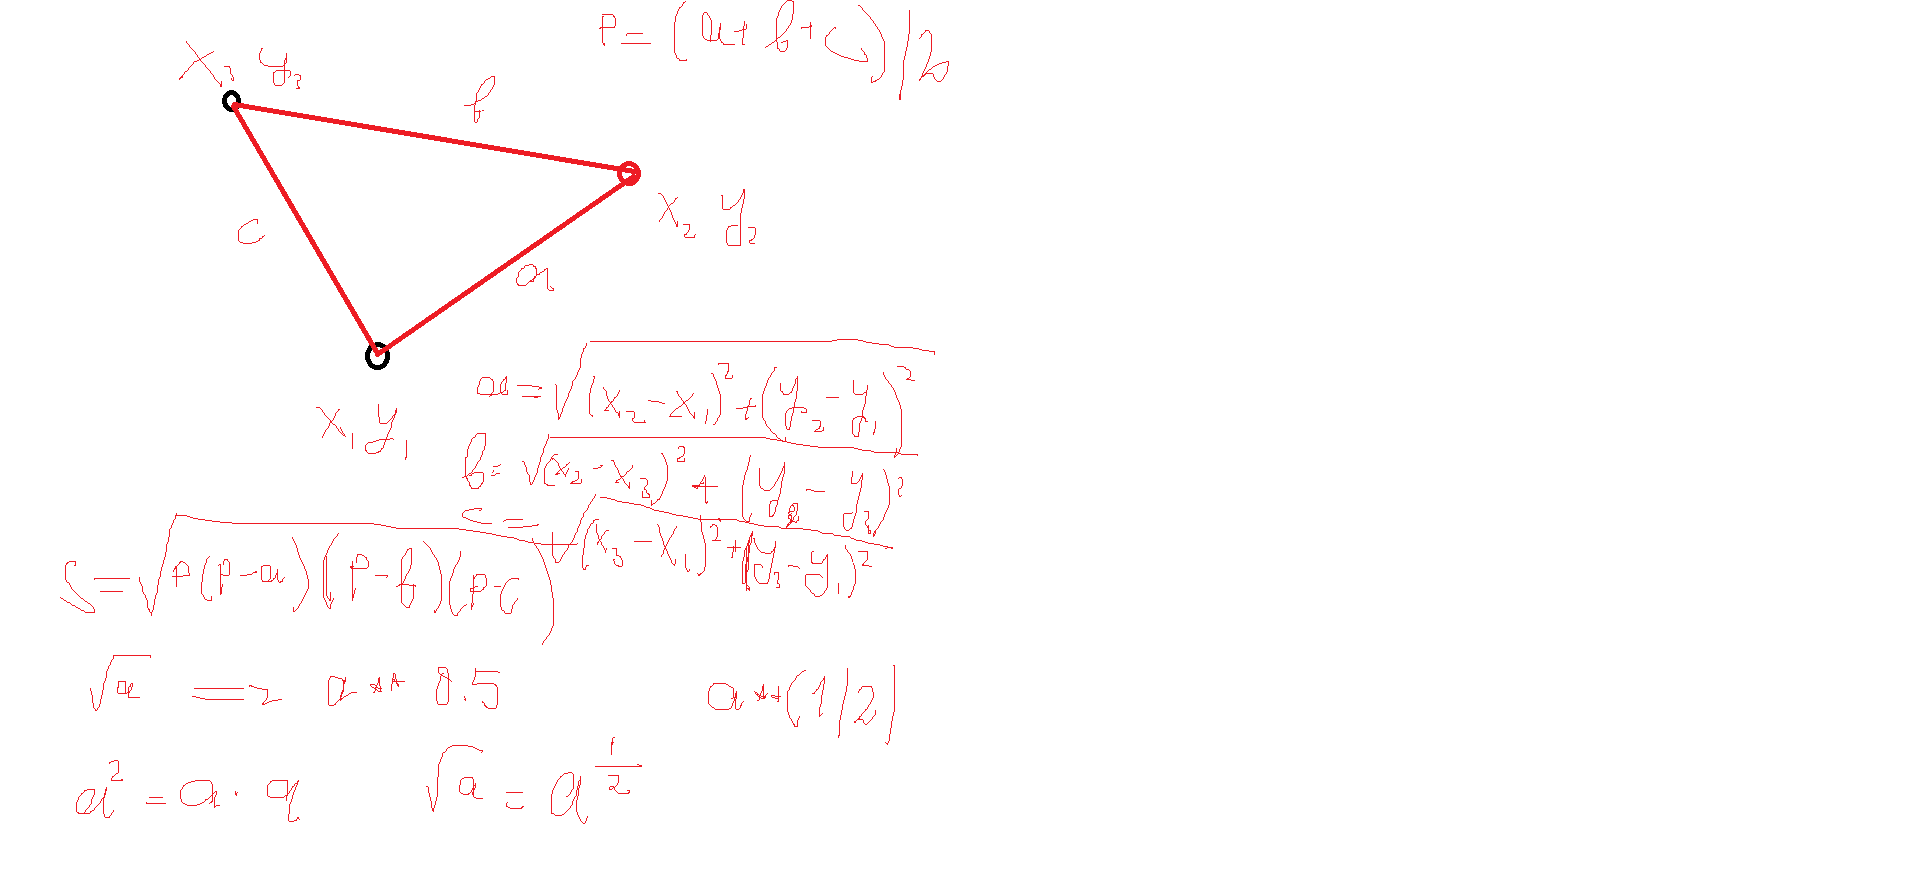 P = (a + b + c) / 2
x₃ y₃
b
x₂ y₂
c
a
x₁ y₁
a = √((x₂ - x₁)² + (y₂ - y₁)²)
b = √((x₂ - x₃)² + (y₂ - y₃)²)
c = √((x₃ - x₁)² + (y₃ - y₁)²)
S = √(P(P - a)(P - b)(P - c))
√a = a ** 0.5
a ** (1/2)
a² = a · a
√a = a^(1/2)